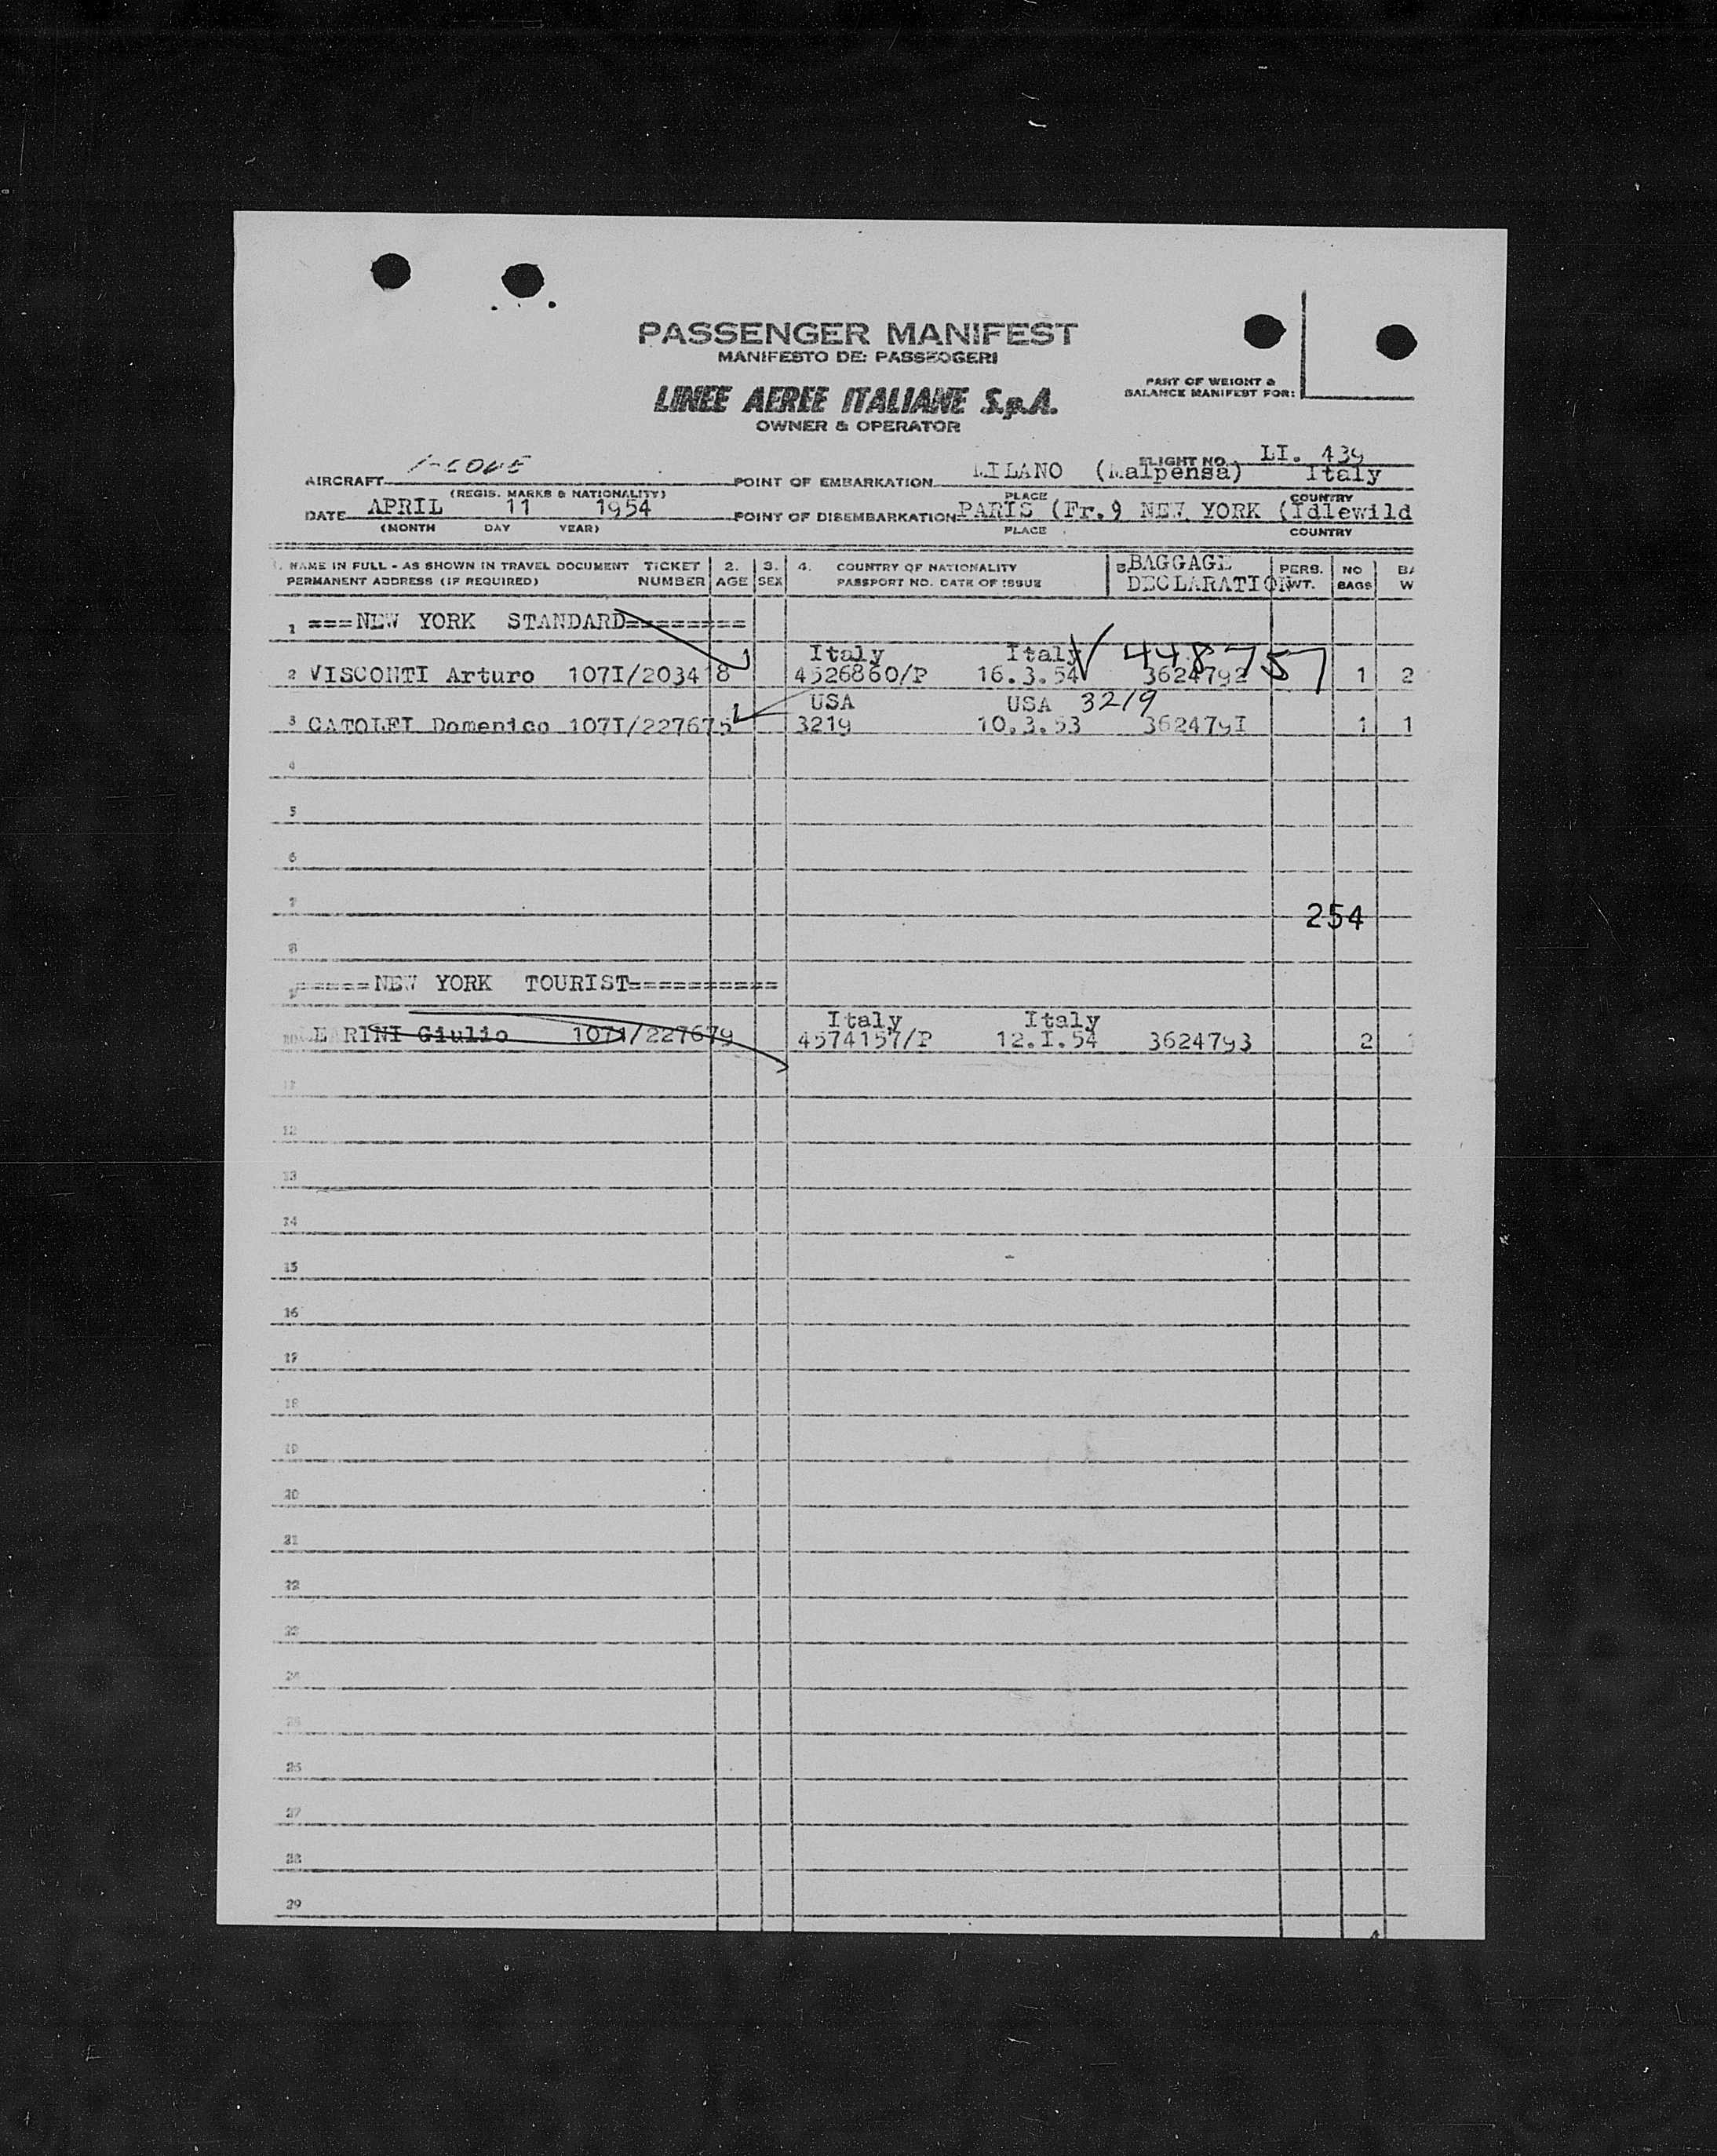 PASSENGER MANIFEST
MANIFESTO DEI PASSEGGERI
LINEE AEREE ITALIANE S.p.A.
OWNER & OPERATOR
PART OF WEIGHT &
BALANCE MANIFEST FOR:
FLIGHT NO. LI. 439
AIRCRAFT POINT OF EMBARKATION MILANO (Malpensa) Italy
(REGIS. MARKS & NATIONALITY) PLACE COUNTRY
DATE APRIL 11 1954 POINT OF DISEMBARKATION PARIS (Fr.9) NEW YORK (Idlewild
(MONTH DAY YEAR) PLACE COUNTRY
1. NAME IN FULL - AS SHOWN IN TRAVEL DOCUMENT TICKET 2. 3. 4. COUNTRY OF NATIONALITY 5. BAGGAGE PERS. NO BA
PERMANENT ADDRESS (IF REQUIRED) NUMBER AGE SEX PASSPORT NO. DATE OF ISSUE DECLARATION WT. BAGS W
1 ===NEW YORK STANDARD========
Italy Italy 448757
2 VISCONTI Arturo 107I/203418 4526860/P 16.3.54 3624792 1 2
USA USA 3219
3 CATOLFI Domenico 107I/227675 3219 10.3.53 362479I 1 1
4
5
6
7
254
8
9 =====NEW YORK TOURIST==========
Italy Italy
10 Giulio 107I/227679 4574157/P 12.I.54 3624793 2
11
12
13
14
15
16
17
18
19
20
21
22
23
24
25
26
27
28
29